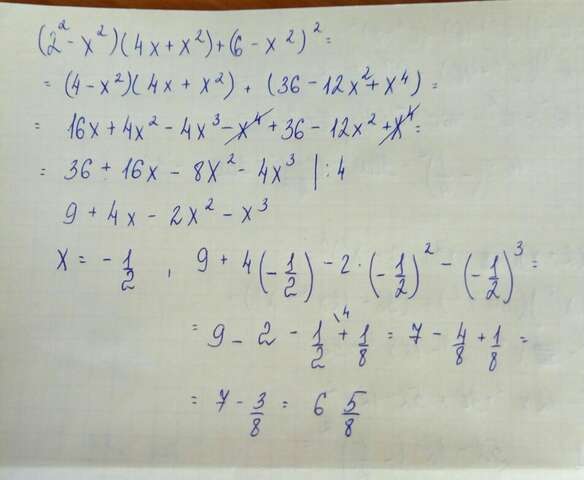 (2² - x²)(4x + x²) + (6 - x²)² =
= (4 - x²)(4x + x²) + (36 - 12x² + x⁴) =
= 16x + 4x² - 4x³ - x⁴ + 36 - 12x² + x⁴ =
= 36 + 16x - 8x² - 4x³ | : 4
9 + 4x - 2x² - x³
x = - 1/2 , 9 + 4(- 1/2) - 2 · (- 1/2)² - (- 1/2)³ =
= 9 - 2 - 1/2 \⁴ + 1/8 = 7 - 4/8 + 1/8 =
= 7 - 3/8 = 6 5/8